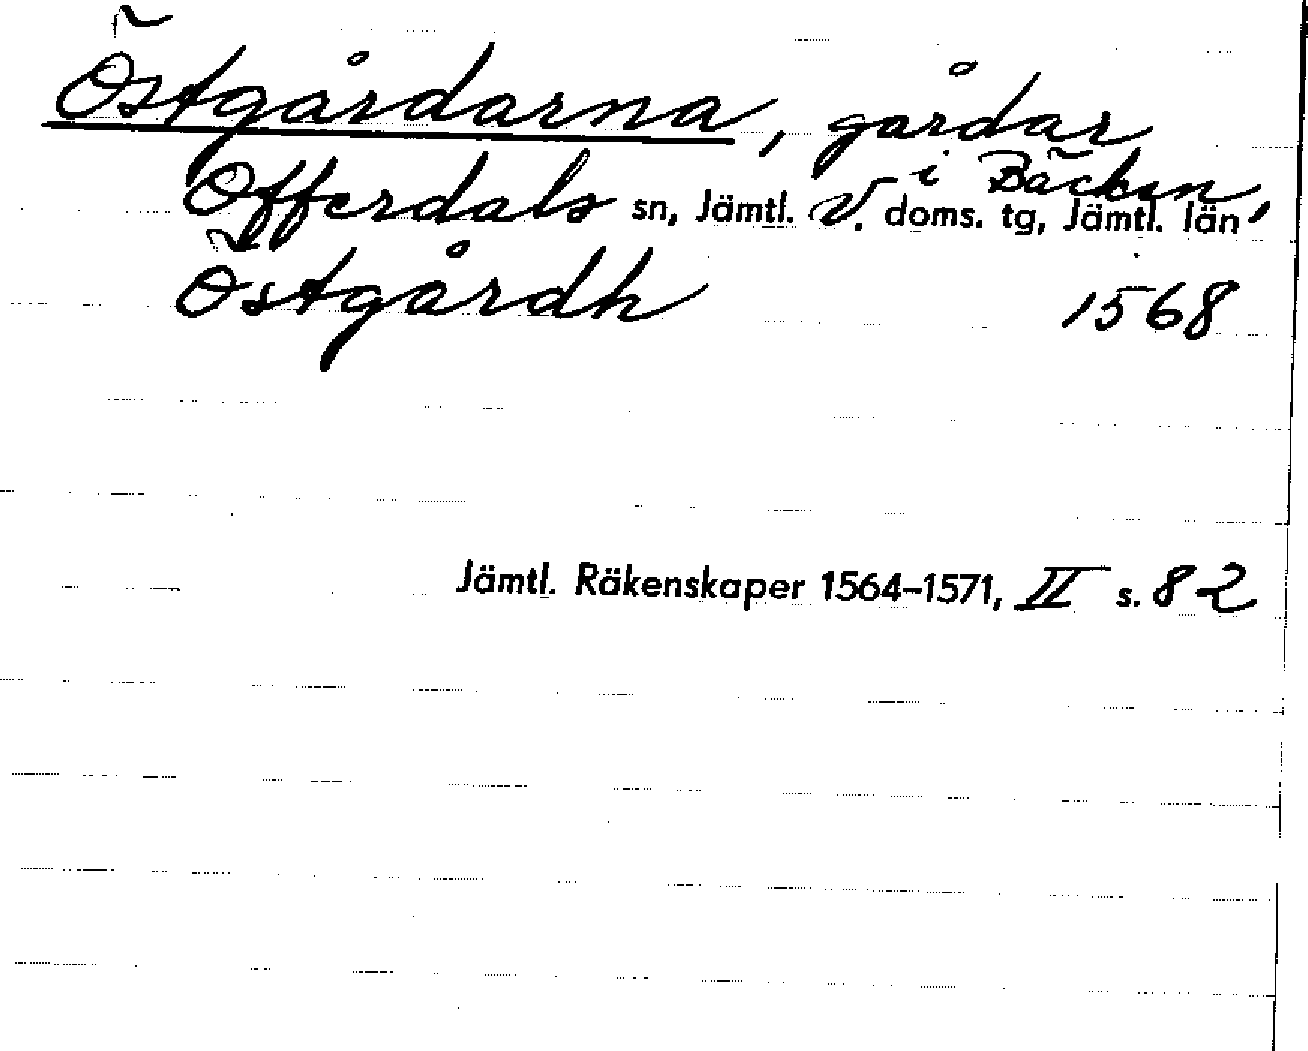 Östgårdarna, gårdar
i Bäcken,
Offerdals sn, Jämtl. V. doms. tg, Jämtl. län
Östgårdh 1568
Jämtl. Räkenskaper 1564–1571, II s. 82